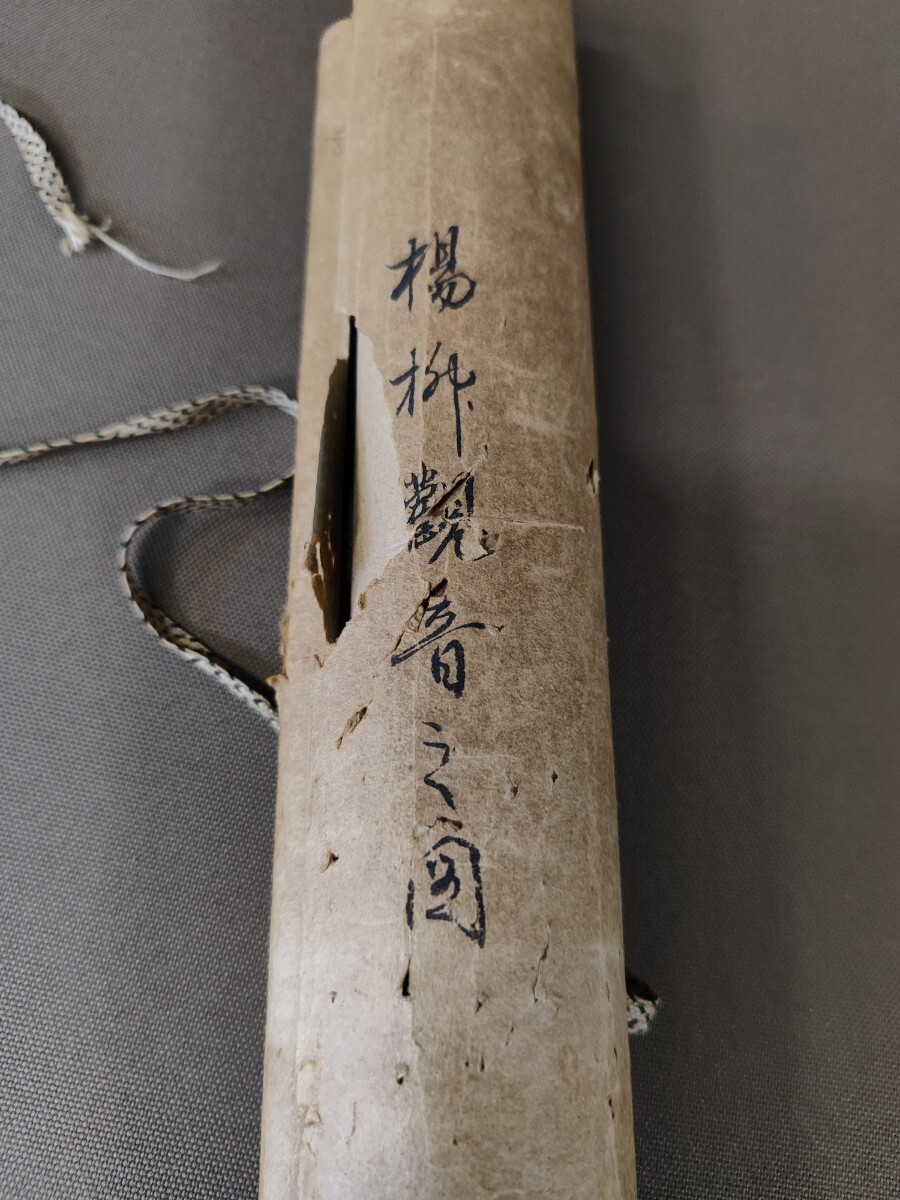 楊柳觀音之圖